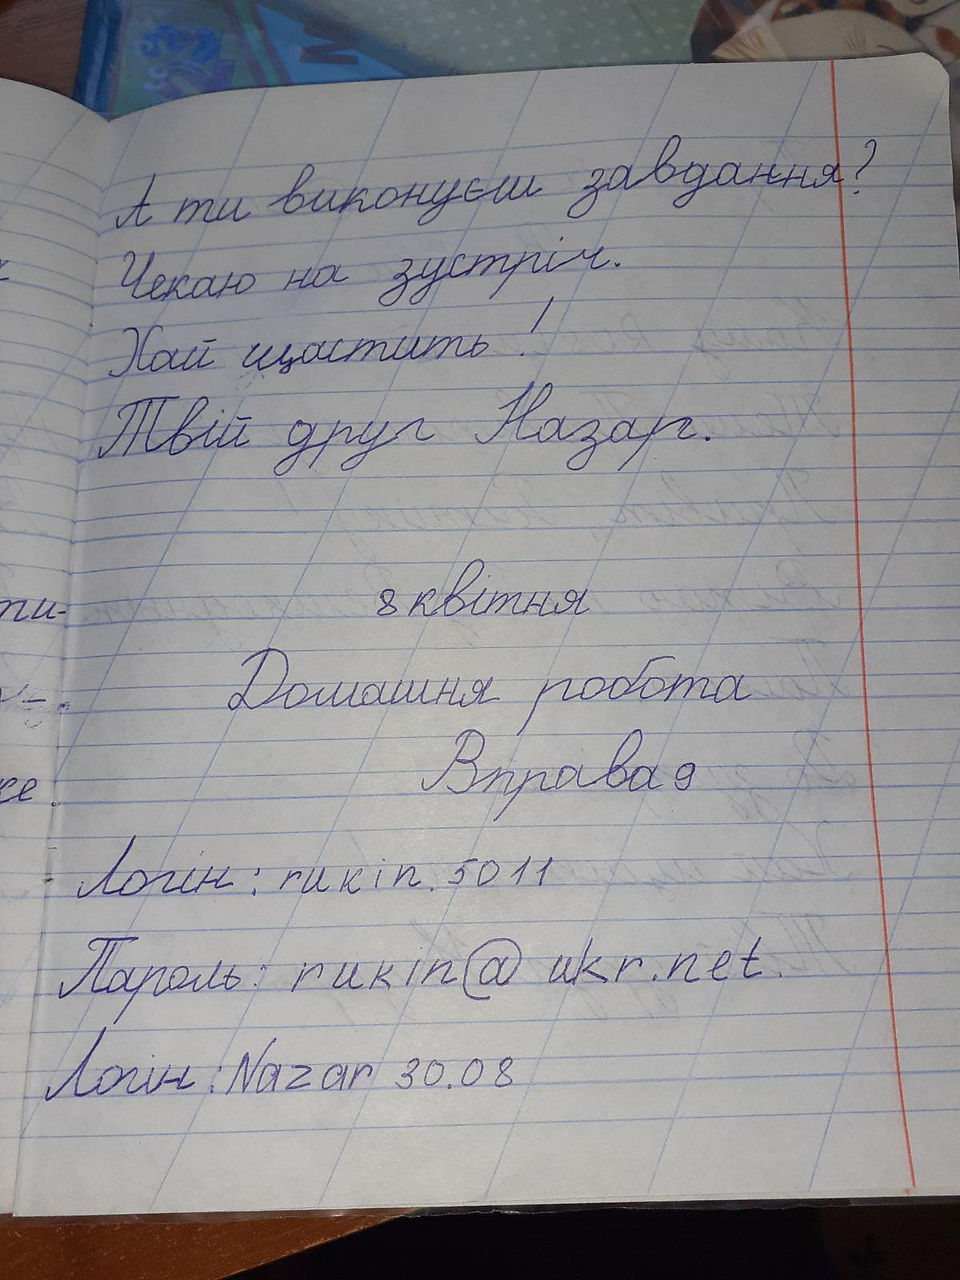 А ти виконуєш завдання?
Чекаю на зустріч.
Хай щастить!
Твій друг Назар.
8 квітня
Домашня робота
Вправа 9
Логін: rukin.5011
Пароль: rukin@ukr.net.
Логін: Nazar 30.08